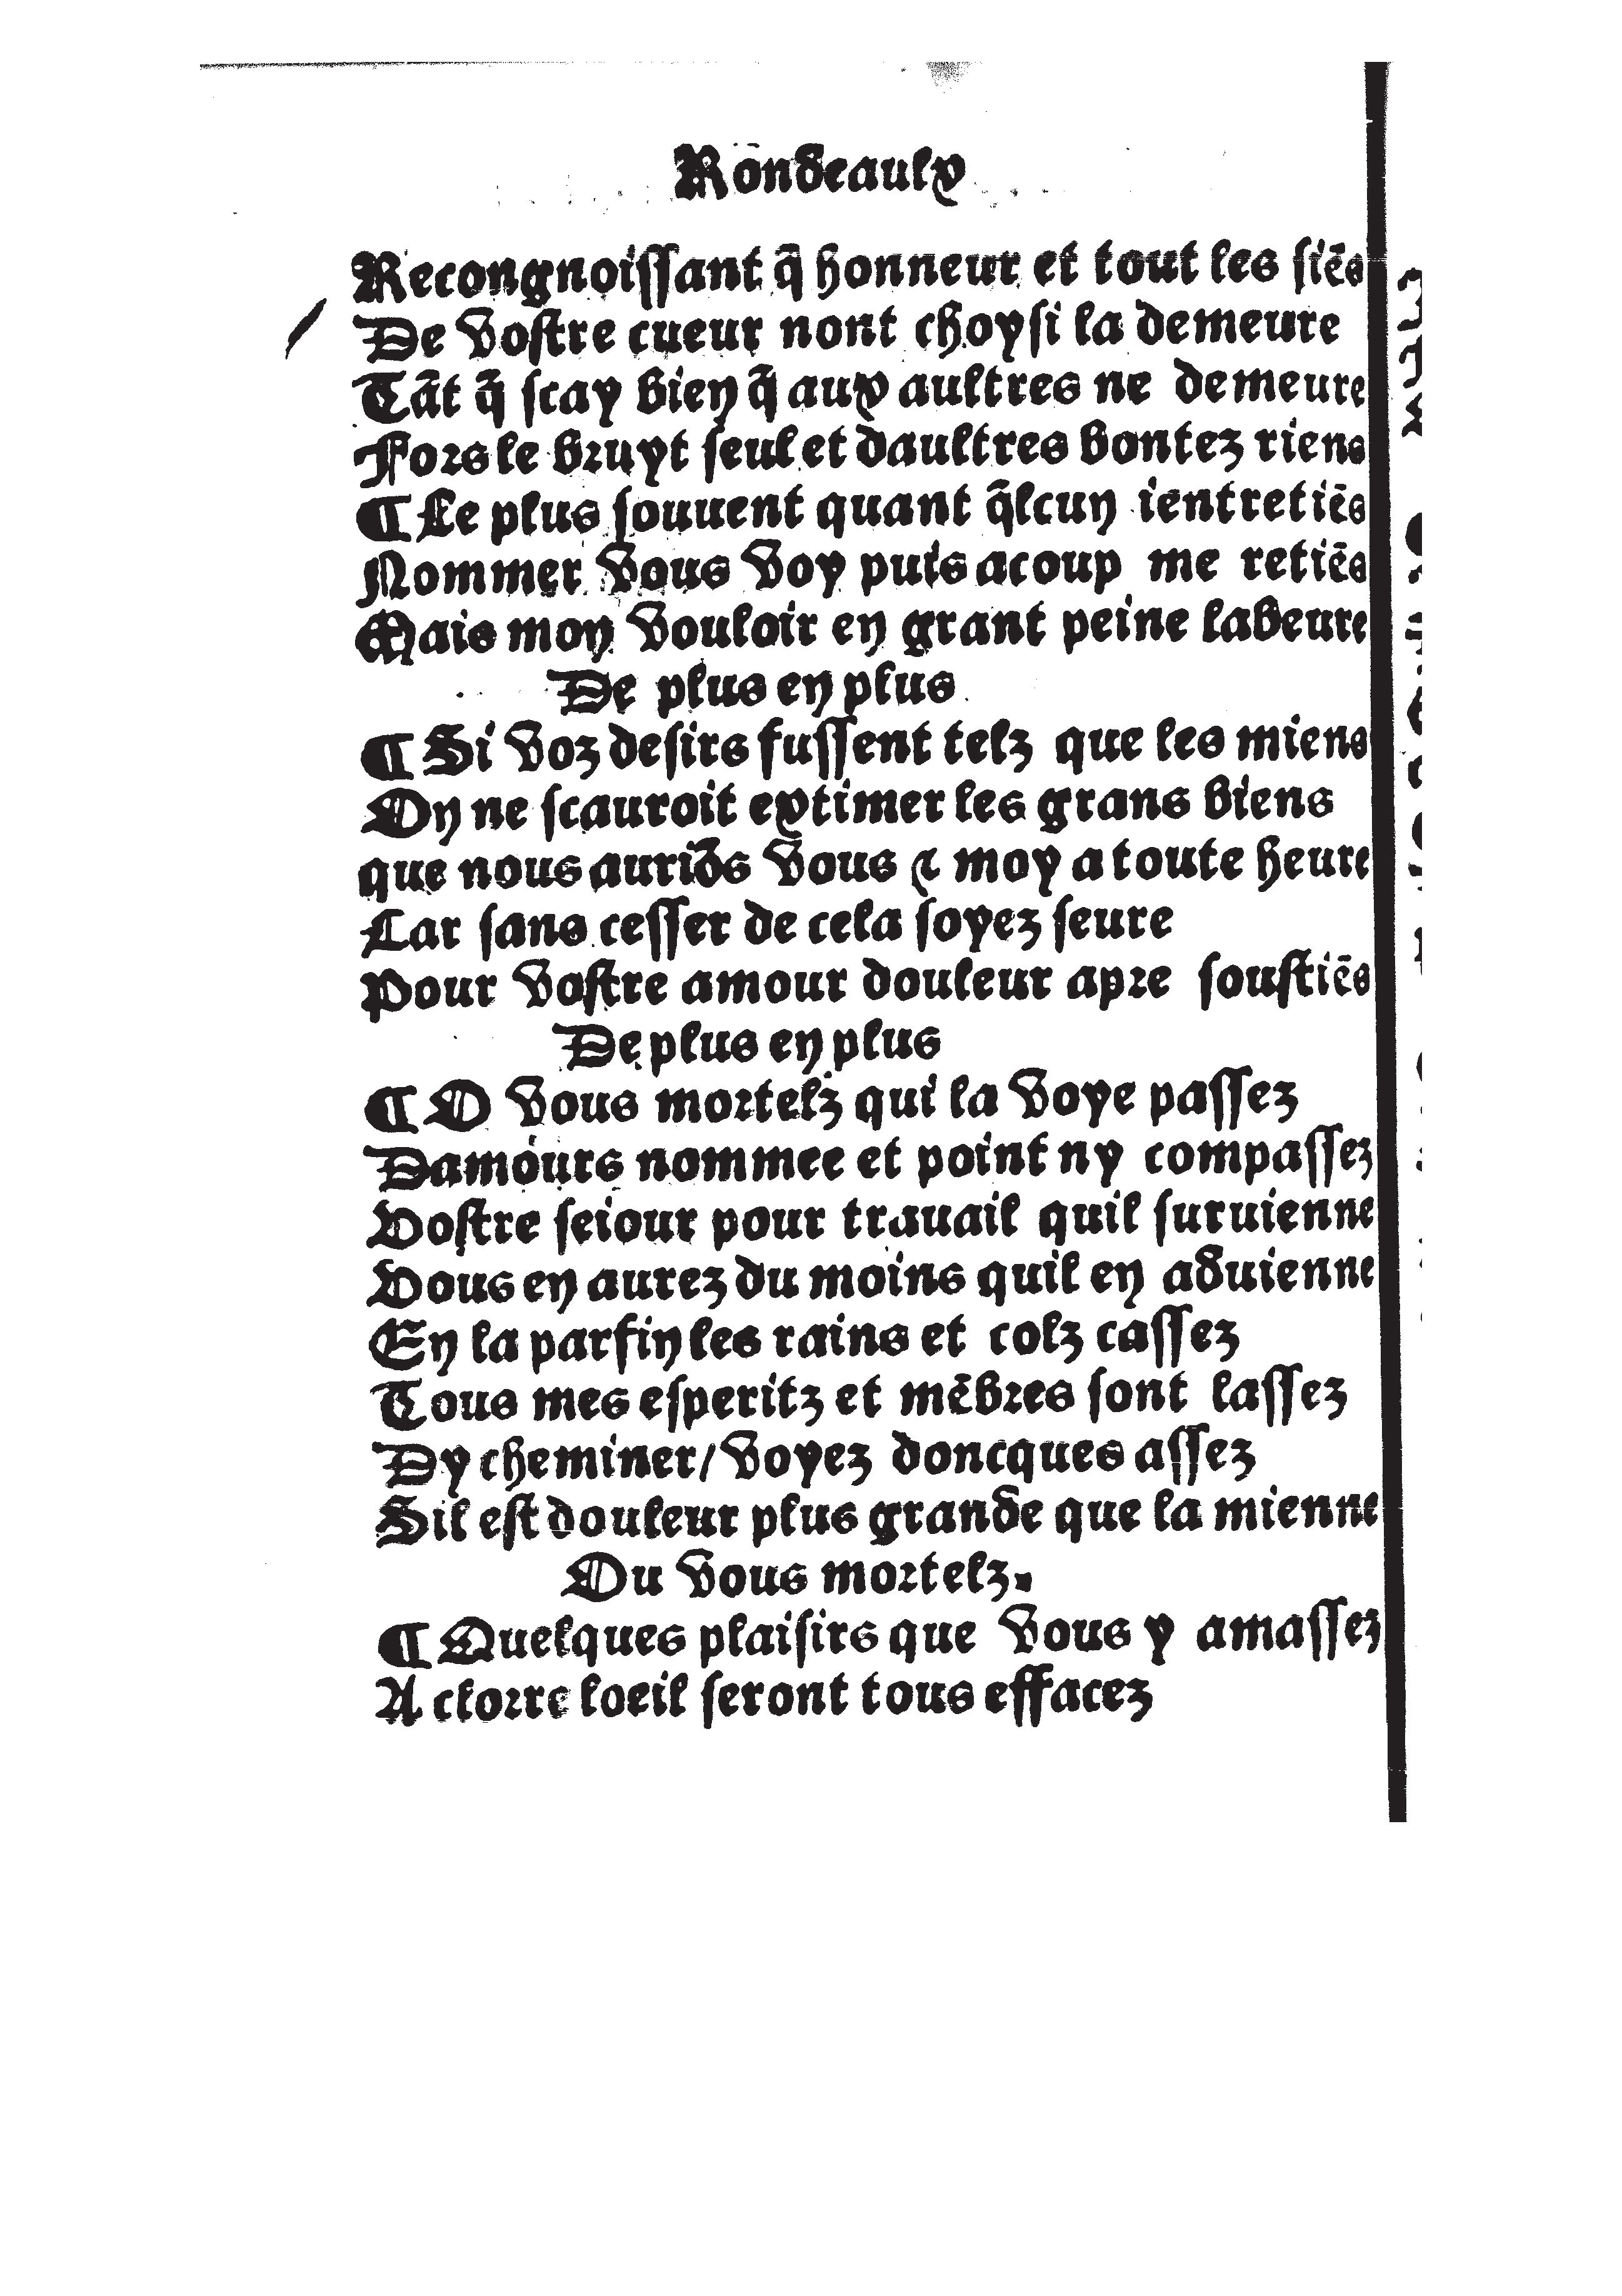 Rondeaulx
Recongnoissant q̃ honneur et tout les siẽs
De vostre cueur nont choysi la demeure
Tãt q̃ scay bien q̃ aux aultres ne demeure
Fors le bruyt seul et daultres bontez riens
¶ Le plus souuent quant q̃lcun ientretiẽs
Nommer vous voy puis acoup me retiẽs
Mais mon vouloir en grant peine labeure
De plus en plus
¶ Si voz desirs fussent telz que les miens
On ne scauroit extimer les grans biens
que nous auriõs vous & moy a toute heure
Car sans cesser de cela soyez seure
Pour vostre amour douleur apre soustiẽs
De plus en plus
¶ O vous mortelz qui la voye passez
Damours nommee et point ny compassez
Vostre seiour pour trauail quil suruienne
Vous en aurez du moins quil en aduienne
En la parfin les rains et colz cassez
Tous mes esperitz et mẽbres sont lassez
Dy cheminer/voyez doncques assez
Sil est douleur plus grande que la mienne
Ou vous mortelz.
¶ Quelques plaisirs que vous y amassez
A clorre loeil seront tous effacez